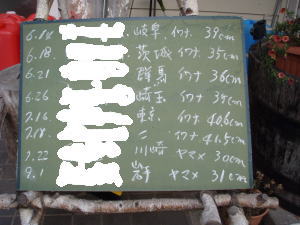 6.14 岐阜 イワナ 39cm
6.18 茨城 イワナ 35cm
6.21 群馬 イワナ 36cm
6.26 埼玉 イワナ 39cm
7.16 東京 イワナ 40.6cm
7.18 〃 イワナ 41.5cm
7.22 川崎 ヤマメ 30cm
9.1 岩手 ヤマメ 31cm